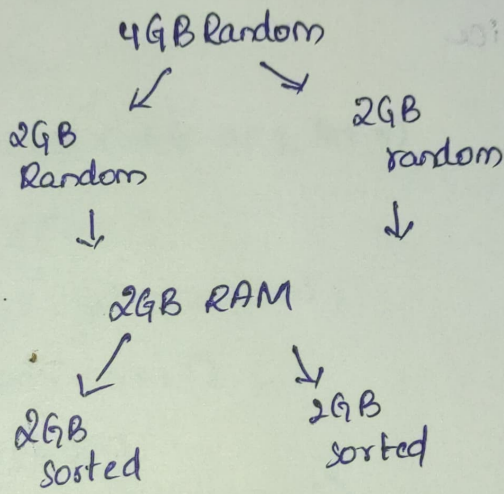 4GB Random
2GB
Random
2GB
random
2GB RAM
2GB
sorted
2GB
sorted